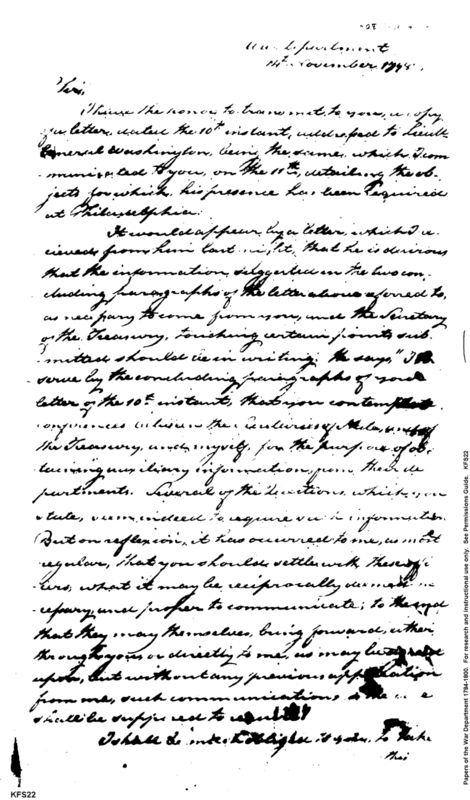 War Department
14th November 1798.
Sir,
I have the honor to transmit, to you, a copy
of a letter, dated the 10th instant, addressed to Lieut
General Washington, being the same which I com
municated to you, on the 11th, detailing the ob-
jects for which, his presence has been required
at Philadelphia.
It would appear, by a letter, which I re-
cieved from him last night, that he is desirous
that the information, suggested in the two con-
cluding paragraphs of the letter above referred to,
as necessary to come from you, and the Secretary
of the Treasury, touching certain points sub-
mitted should be in writing. He says, "I ob
serve by the concluding paragraphs of your
letter of the 10th instant, that you contemplate
conferences between the Secretaries of State, and of
the Treasury, and myself, for the purpose of ob-
taining auxiliary information, from their de
partments. Several of the Questions, which you
state, seem indeed to require such information.
But on reflexion, it has occurred to me, as most
regular, that you should settle with these offi
cers, what it may be reciprocally deemed ne
cessary, and proper to communicate; to the end
that they may themselves, bring forward, either
through you, or directly to me, as may be agreed
upon, but without any previous application
from me, such communications as
shall be supposed to
I shall be obliged to you, to take
this
KFS22
Papers of the War Department 1784-1800. For research and instructional use only. See Permissions Guide. KFS22